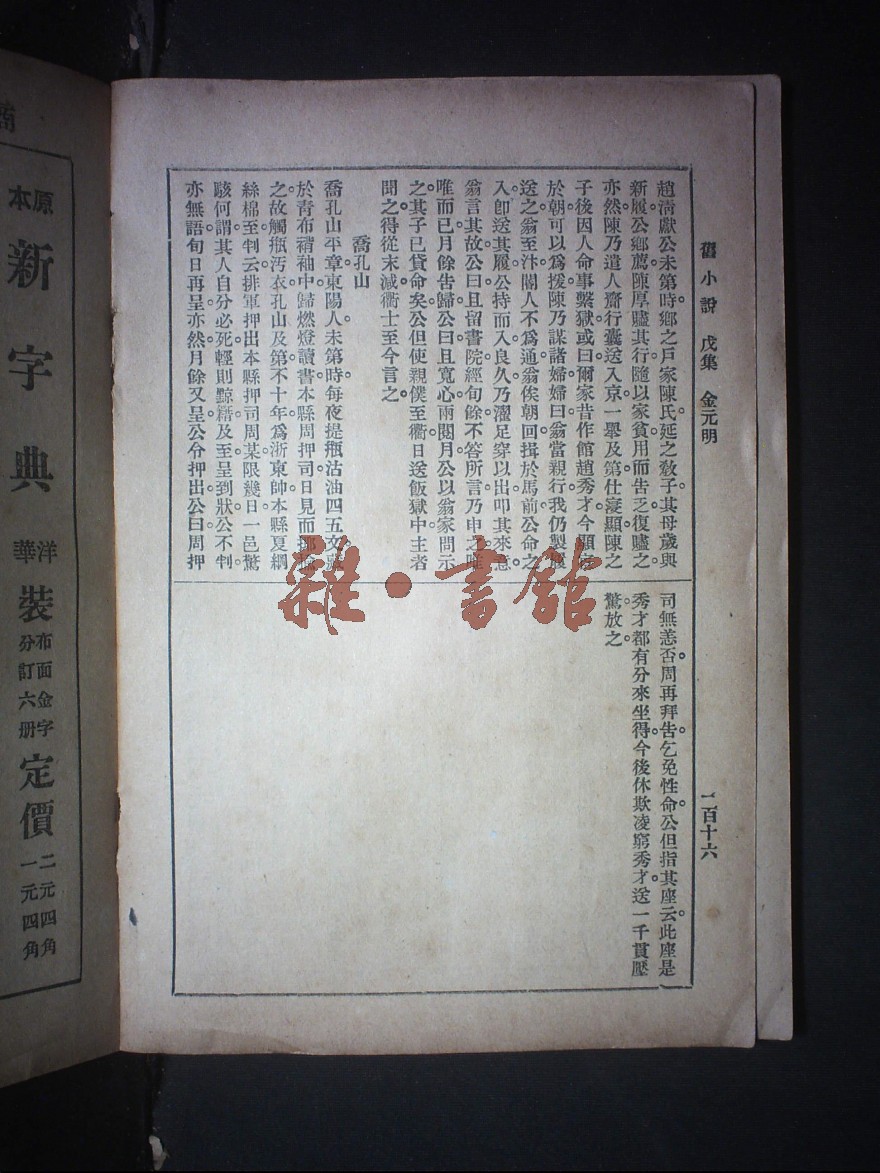 舊小說 戊集 金元明
一百十六
趙淸獻公未第時。鄉之戶家陳氏延之敎子。其母歲與
新履。公鄉薦。陳厚贐其行。隨以家貧用而吿乏。復贐之。
亦然。陳乃遣人齎行囊送入京。一舉及第。仕寖顯。陳之
子後因人命事繫獄。或曰爾家昔作館趙秀才今顯
於朝。可以爲援。陳乃謀諸婦。婦曰。翁當親行。我仍製履
送之。翁至汴。閽人不爲通。翁俟朝回。揖於馬前。公命之
入。卽送其履。公持而入。良久。乃濯足穿以出。叩其來意。
翁言其故。公曰且留書院。經旬餘不答所言。乃申之。唯
唯而已。月餘吿歸。公曰且寬心。兩閱月。公以翁家問示
之。其子已貸命矣。公但使親僕至衢日送飯獄中。主者
聞之。得從末減。衢士至今言之。
喬孔山
喬孔山平章。東陽人。未第時。每夜提瓶沽油四五文。藏
於靑布褙袖中歸。燃燈讀書。本縣周押司日見而
之。故觸瓶汚衣。孔山及第。不十年。爲浙東帥。本縣夏綱
絲棉至。判云。排軍押出本縣押司周某。限幾日。一邑驚
駭。何謂其人自分必死。輕則黥籍。及至呈到狀。公不判
亦無語。旬日再呈。亦然。月餘又呈。公令押出。公曰。周押
司無恙否。周再拜吿。乞免性命。公但指其座云。此座是
秀才都有分來坐得。今後休欺凌窮秀才。送一千貫壓
驚放之。
原本
新字典
洋華裝
布面金字
分訂六册
定價
二元四角
一元四角
雜·書館